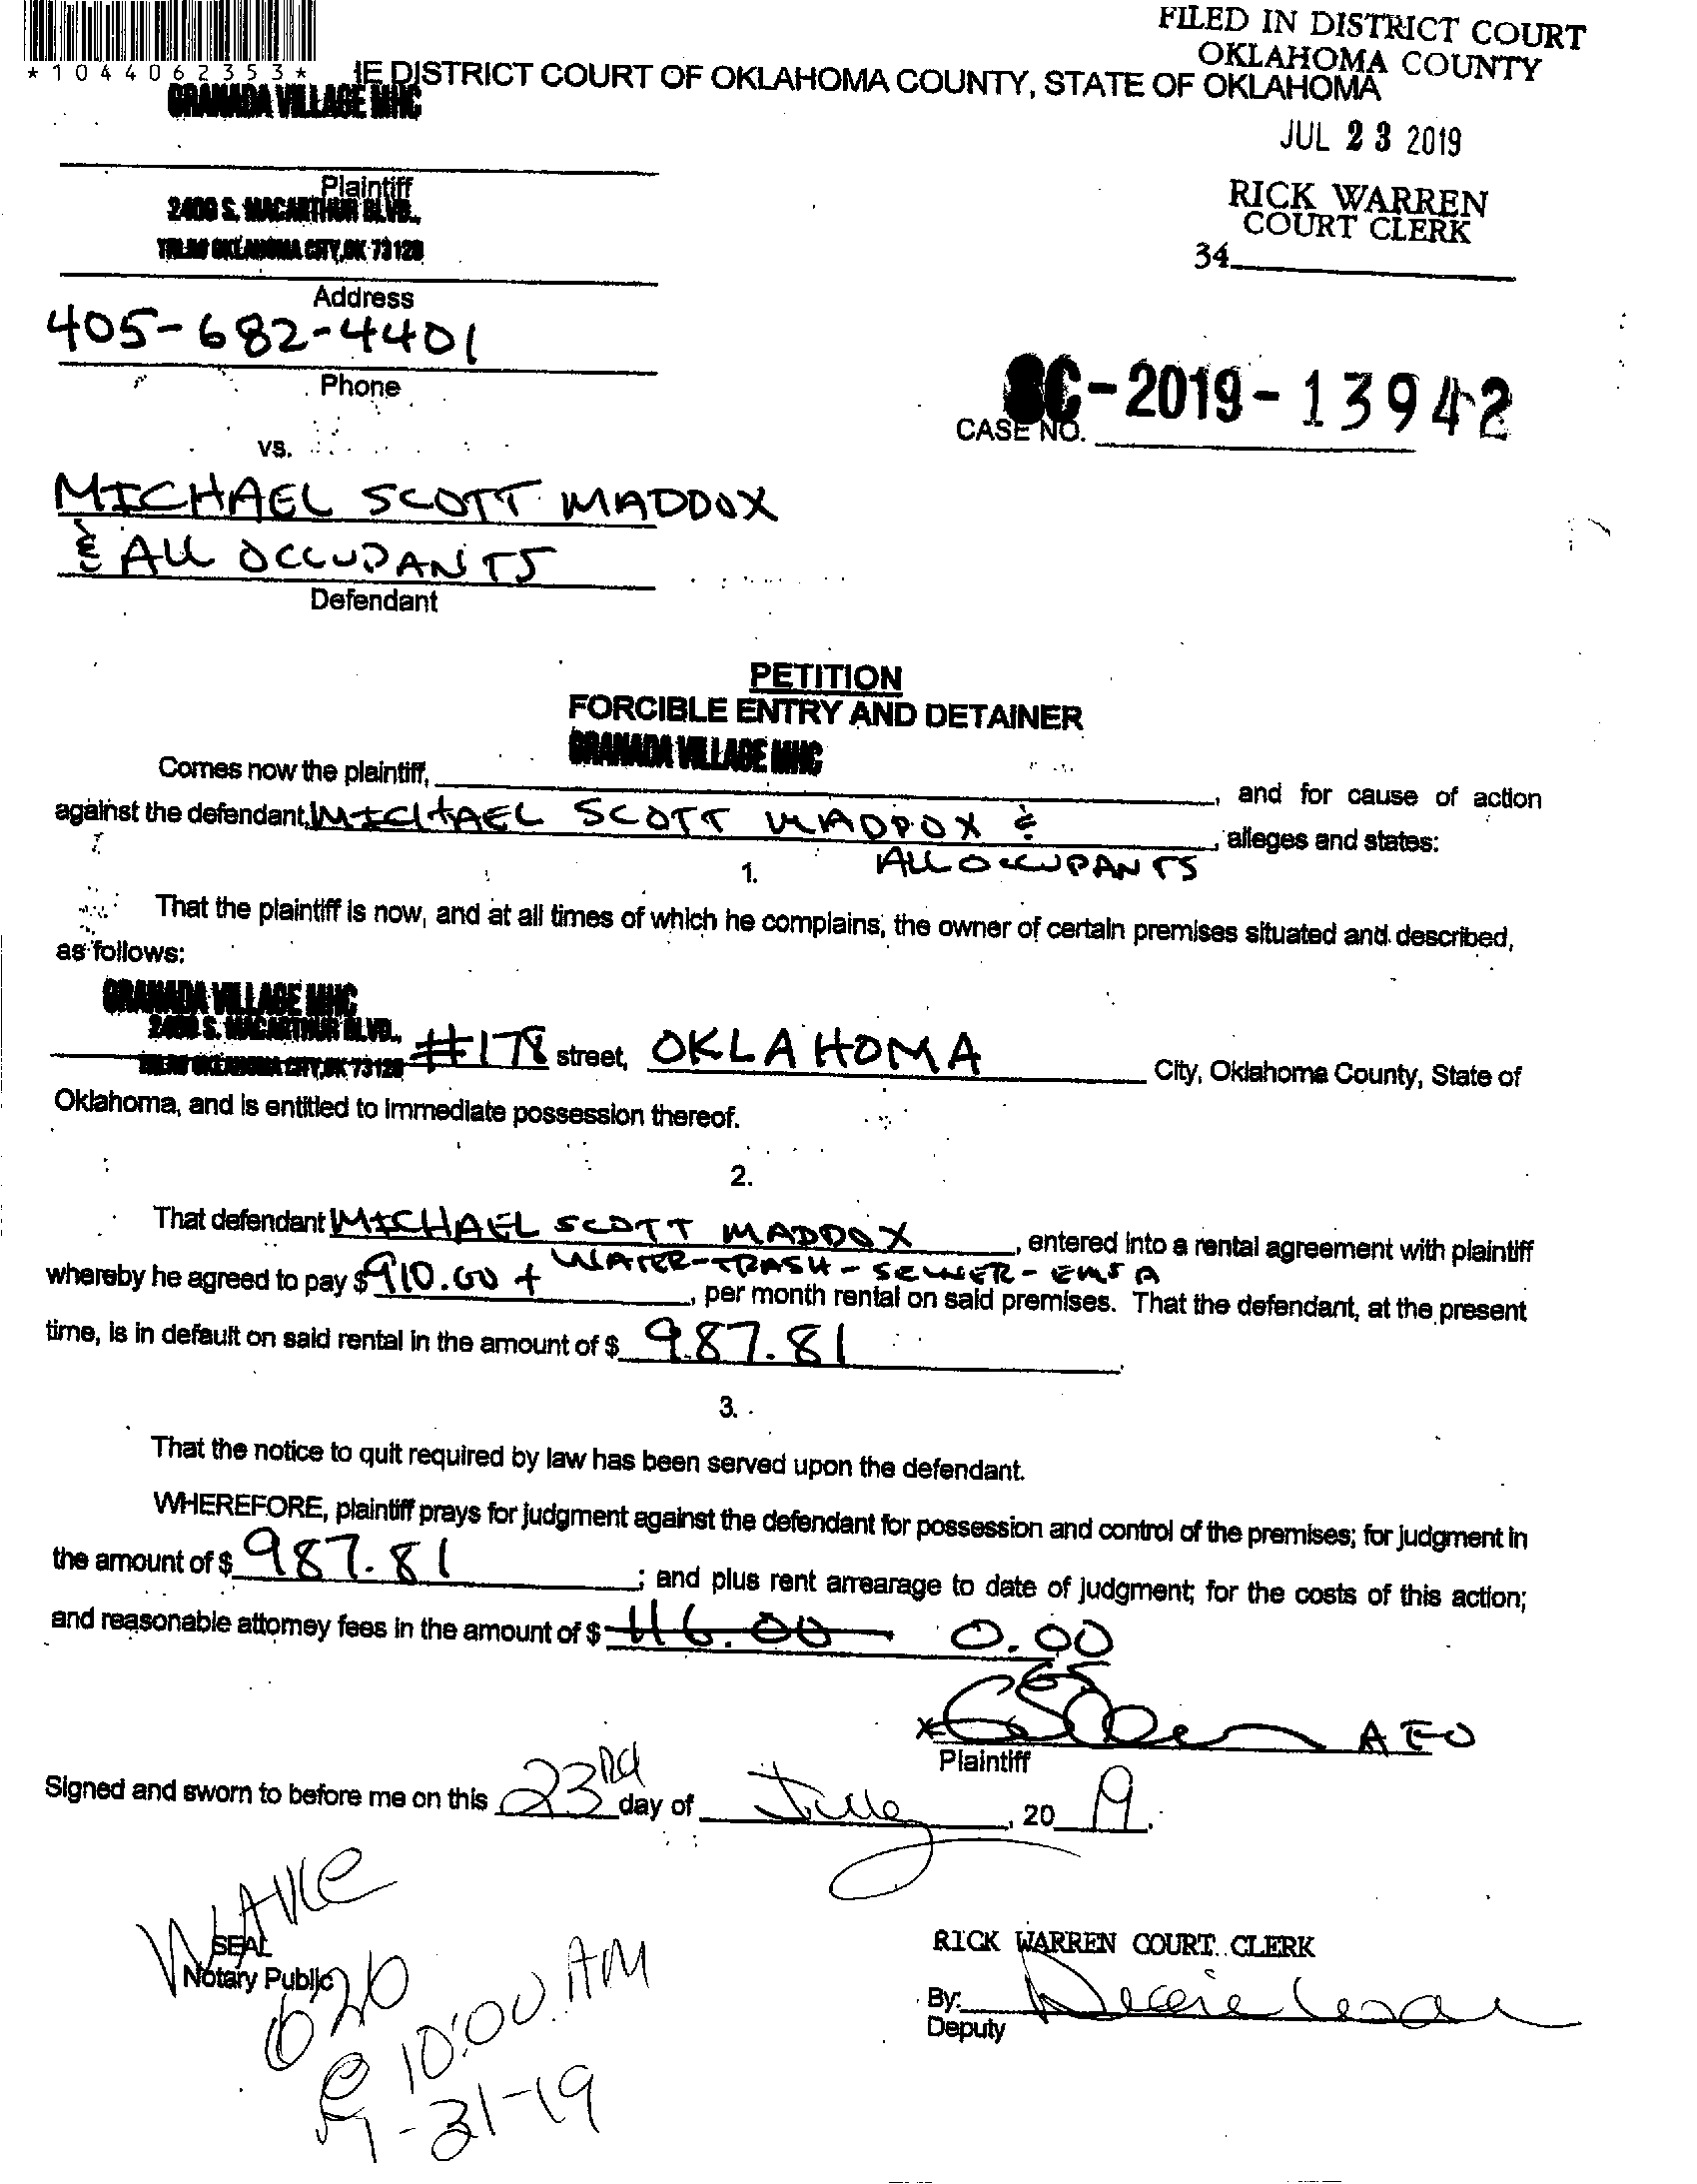 FILED IN DISTRICT COURT
OKLAHOMA COUNTY
*1044062353*
IE DISTRICT COURT OF OKLAHOMA COUNTY, STATE OF OKLAHOMA
GRANADA VILLAGE MHC
JUL 23 2019
Plaintiff
2400 S. MACARTHUR BLVD.,
OKLAHOMA CITY, OK 73128
RICK WARREN
COURT CLERK
34
Address
405-682-4401
Phone
SC-2019-13942
CASE NO.
vs.
MICHAEL SCOTT MADDOX
& ALL OCCUPANTS
Defendant
PETITION
FORCIBLE ENTRY AND DETAINER
GRANADA VILLAGE MHC
Comes now the plaintiff, , and for cause of action
against the defendant, MICHAEL SCOTT MADDOX & , alleges and states:
ALL OCCUPANTS
1.
That the plaintiff is now, and at all times of which he complains, the owner of certain premises situated and described,
as follows:
GRANADA VILLAGE MHC
2400 S. MACARTHUR BLVD.,
OKLAHOMA CITY, OK 73128 #178 street, OKLAHOMA City, Oklahoma County, State of
Oklahoma, and is entitled to immediate possession thereof.
2.
That defendant MICHAEL SCOTT MADDOX , entered into a rental agreement with plaintiff
WATER-TRASH-SEWER-EMSA
whereby he agreed to pay $ 910.00 + , per month rental on said premises. That the defendant, at the present
time, is in default on said rental in the amount of $ 987.81 .
3.
That the notice to quit required by law has been served upon the defendant.
WHEREFORE, plaintiff prays for judgment against the defendant for possession and control of the premises; for judgment in
the amount of $ 987.81 ; and plus rent arrearage to date of judgment; for the costs of this action;
and reasonable attorney fees in the amount of $ 116.00 0.00
AEO
Plaintiff
Signed and sworn to before me on this 23rd day of July , 20 19.
WAKE
SEAL
Notary Public
620
@ 10:00 AM
7-31-19
RICK WARREN COURT CLERK
By:
Deputy